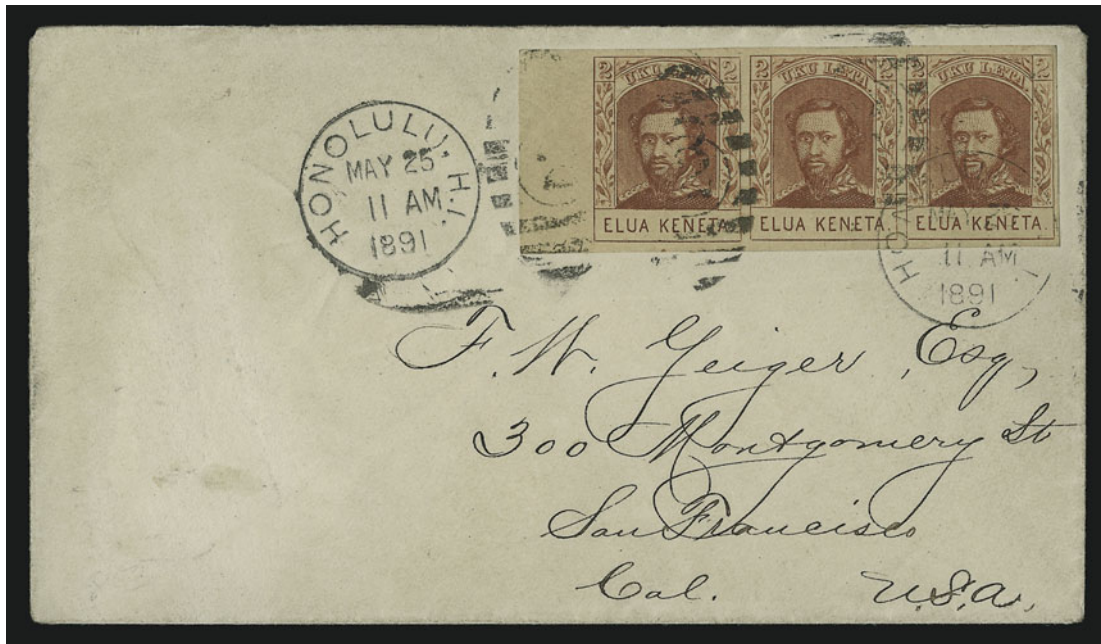 HONOLULU. H.I.
MAY 25
11 AM
1891
2 UKU LETA 2
ELUA KENETA.
2 UKU LETA 2
ELUA KENETA.
2 UKU LETA 2
ELUA KENETA.
11 AM
1891
F. W. Geiger, Esq,
300 Montgomery St
San Francisco
Cal. U.S.A.